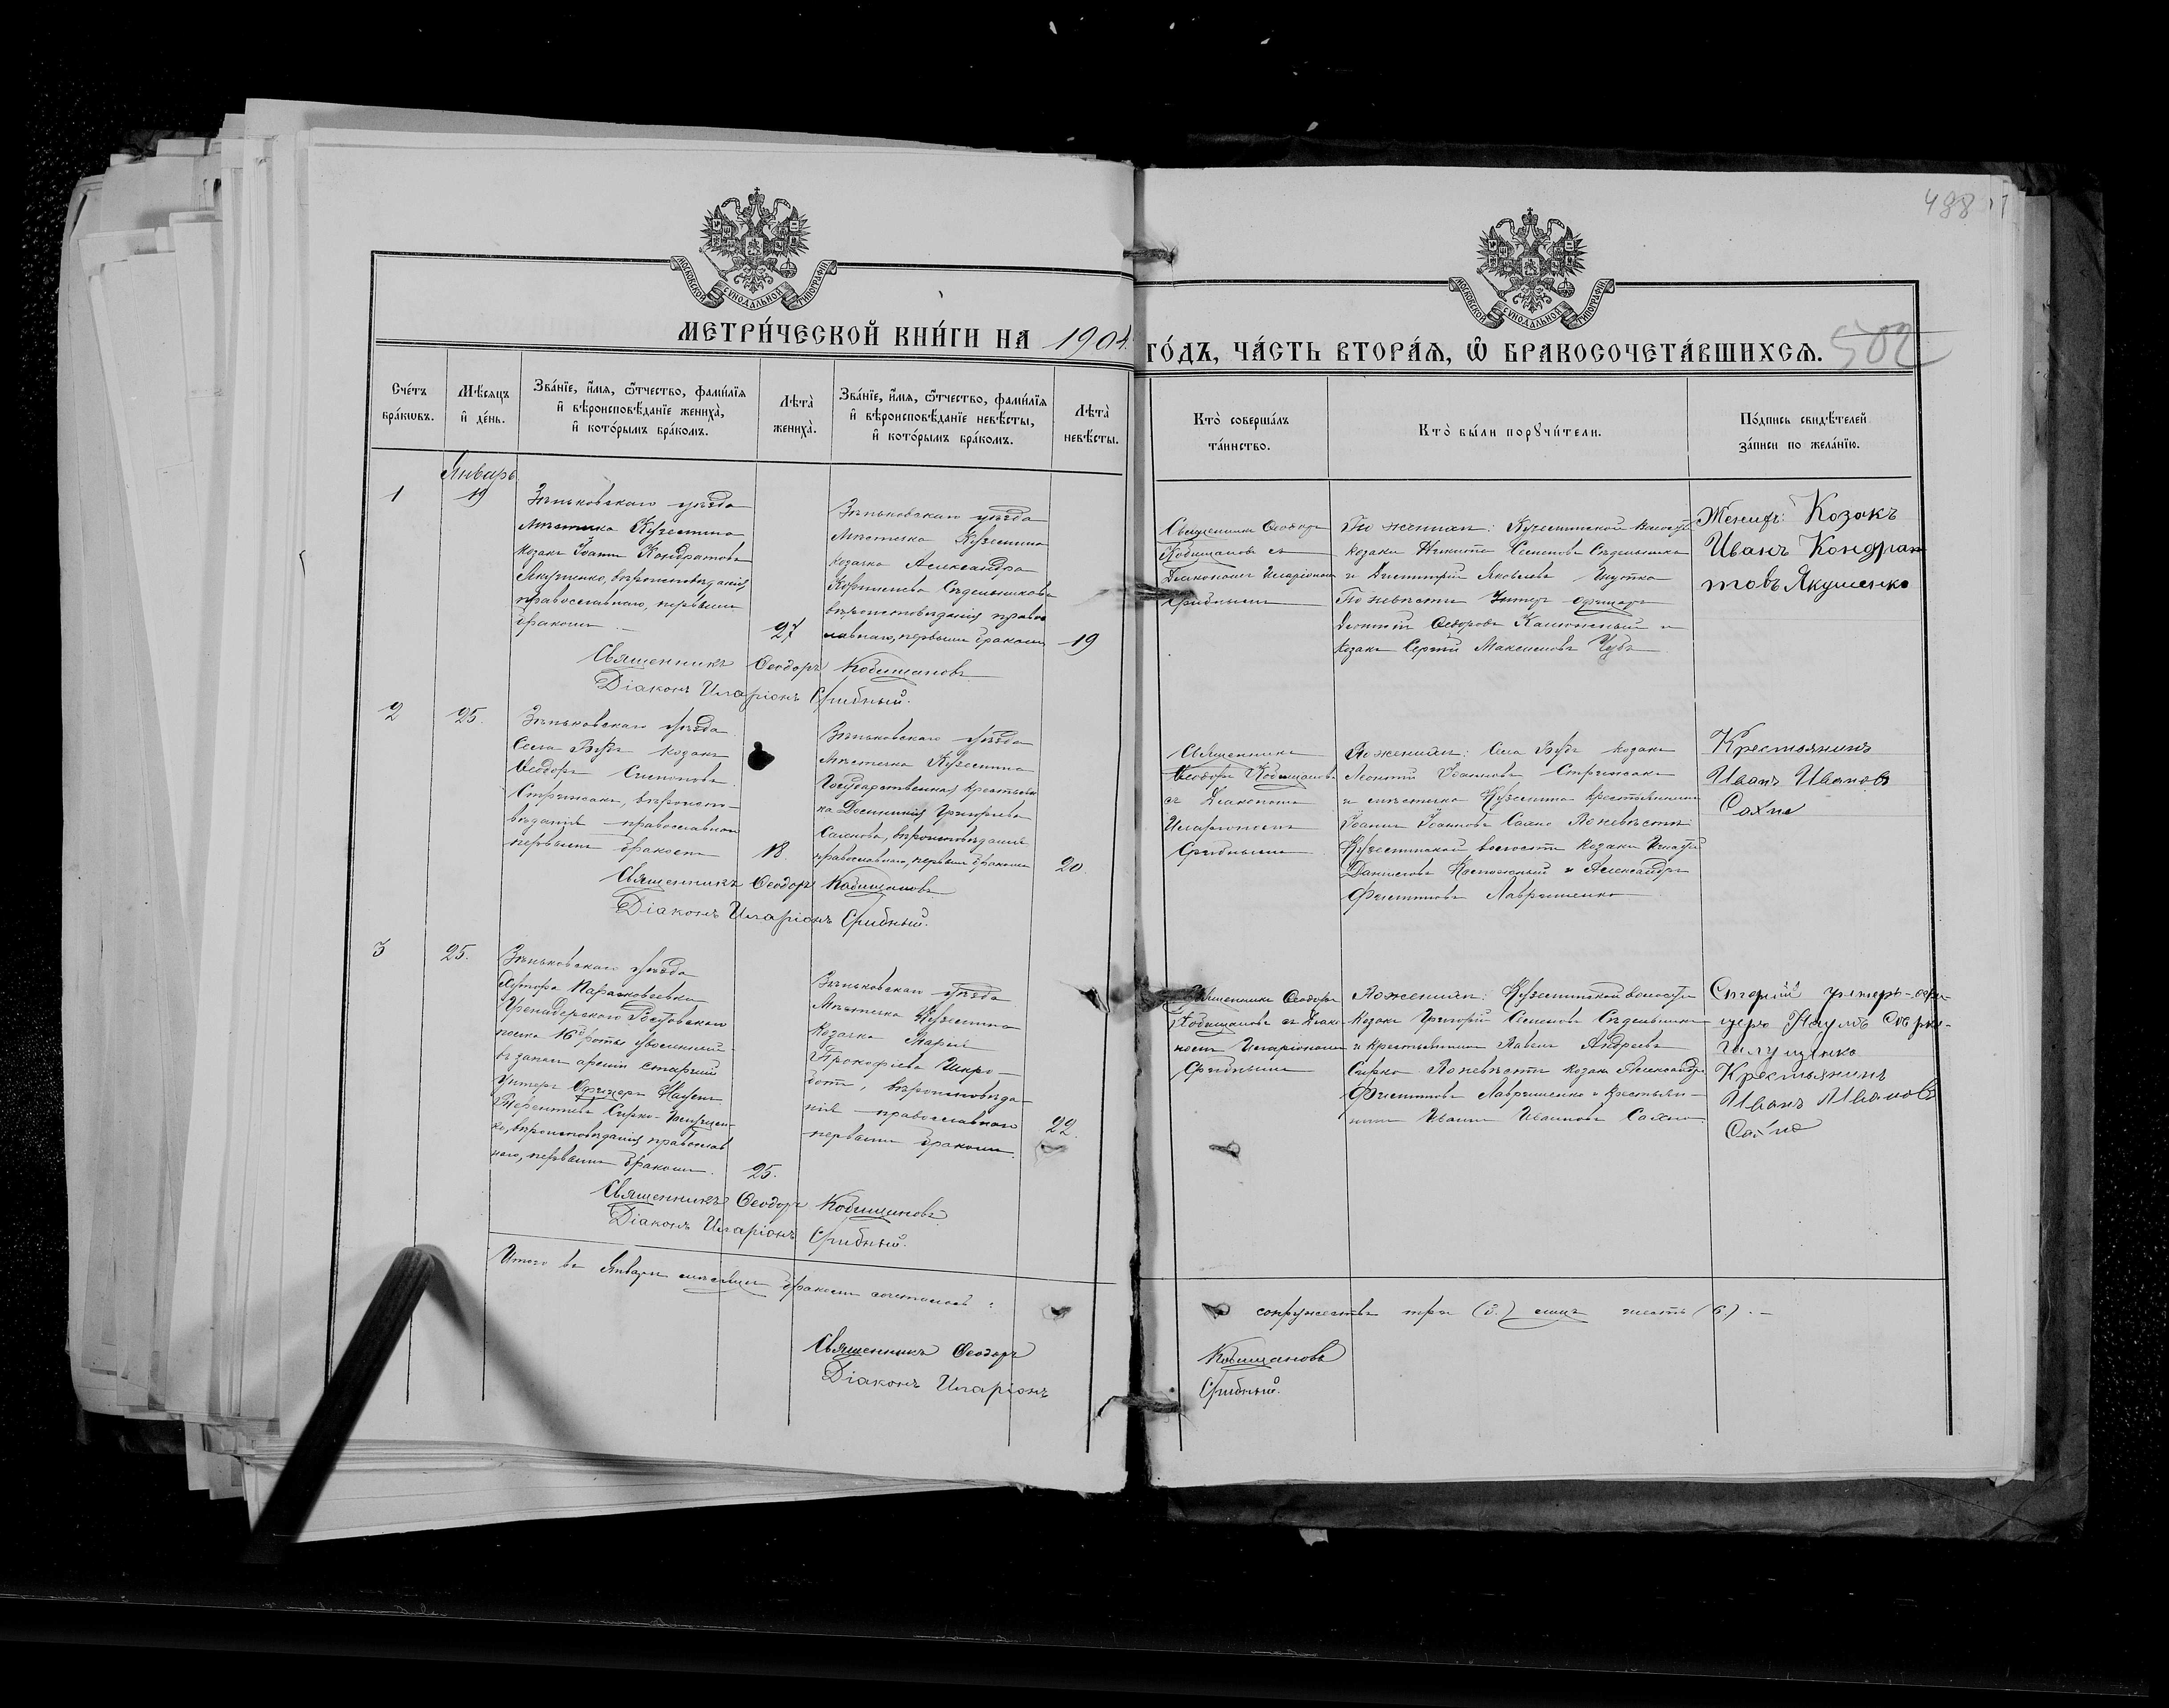 488
МОСКОВСКОЙ СѴНОДАЛЬНОЙ ТИПОГРАФІИ
МОСКОВСКОЙ СѴНОДАЛЬНОЙ ТИПОГРАФІИ
МЕТРИ́ЧЕСКОЙ КНИ́ГИ НА 1904
ГО́ДЪ, ЧА́СТЬ ВТОРА́Ѧ, Ѽ БРАКОСОЧЕТА́ВШИХСѦ.
502
Сче́тъ
бра́кѡвъ.
Мѣ́сѧцъ
и҆ де́нь.
Зва́нїе, и҆́мѧ, ѻ҆́тчество, фами́лїѧ
и҆ вѣроисповѣ́данїе жениха̀,
и҆ кото́рымъ бра́комъ.
Лѣта̀
жениха̀.
Зва́нїе, и҆́мѧ, ѻ҆́тчество, фами́лїѧ
и҆ вѣроисповѣ́данїе невѣ́сты,
и҆ кото́рымъ бра́комъ.
Лѣта̀
невѣ́сты.
Кто̀ соверша́лъ
та́инство.
Кто̀ бы́ли порꙋчи́тели.
По́дпись свидѣ́телей
за́писи по жела́нїю.
Январь
1
19
Зѣньковскаго уѣзда
мѣстечка Куземина
козакъ Іоаннъ Кондратовъ
Якушенко, вѣроисповѣданія
православнаго, первымъ
бракомъ
27
Зѣньковскаго уѣзда
мѣстечка Куземина
козачка Александра
Корнилиева Сѣдельникова
вѣроисповѣданія право
славнаго, первымъ бракомъ
19
Священникъ Ѳеодоръ
Кобищановъ съ
Діакономъ Иларіономъ
Срибнымъ
По женихѣ: Куземинской волости
козаки Никита Семеновъ Сѣдельникъ
и Димитрій Яковлевъ Шутка
По невѣстѣ Унтеръ Офицеръ
Леонтій Ѳедоровъ Калюжный и
козакъ Сергій Максимовъ Чубъ
Женихъ: Козакъ
Иванъ Кондра
товъ Якушенко
Священникъ Ѳеодоръ Кобищановъ
Діаконъ Иларіонъ Срибный.
2
25.
Зѣньковскаго уѣзда
Села Бубъ козакъ
Ѳеодоръ Симоновъ
Стрижакъ, вѣроиспо-
вѣданія православнаго
первымъ бракомъ
18.
Зѣньковскаго уѣзда
мѣстечка Куземина
Государственная крестьян
ка Домникія Григорьева
Сахнова, вѣроисповѣданія
православнаго, первымъ бракомъ
20.
Священникъ
Ѳеодоръ Кобищановъ
съ Діакономъ
Иларіономъ
Срибнымъ
По женихѣ: Села Бубъ козакъ
Леонтій Іоанновъ Стрижакъ
и мѣстечка Куземина крестьянинъ
Іоаннъ Іоанновъ Сахно По невѣстѣ:
Куземинской волости козаки Игнатій
Даниловъ Калюжный и Александръ
Филипповъ Лавриненко
Крестьянинъ
Иванъ Ивановъ
Сахно
Священникъ Ѳеодоръ Кобищановъ
Діаконъ Иларіонъ Срибный.
3
25.
Зѣньковскаго уѣзда
Хутора Парасковеевки
Гренадерскаго Ростовскаго
полка 16й роты уволенный
въ запасъ арміи старшій
Унтеръ Офицеръ Наумъ
Терентиевъ Сирко-
вѣроисповѣданія православ
наго, первымъ бракомъ.
25.
Зѣньковскаго уѣзда
мѣстечка Куземина
козачка Марія
Прокофіева
вѣроисповѣда-
нія православнаго
первымъ бракомъ.
22.
Священникъ Ѳеодоръ
Кобищановъ съ Діако-
номъ Иларіономъ
Срибнымъ
По женихѣ: Куземинской волости
козакъ Григорій Семеновъ Сѣдельникъ
и крестьянинъ Павелъ Андреевъ
Сирко По невѣстѣ козакъ Александръ
Филипповъ Лавриненко и крестьян-
инъ Иванъ Ивановъ Сахно
Старшій унтеръ-офи-
церъ Наумъ
Крестьянинъ
Иванъ Ивановъ
Сахно
Священникъ Ѳеодоръ Кобищановъ
Діаконъ Иларіонъ Срибный.
Итого въ Январѣ мѣсяцѣ бракомъ сочеталось: супружествъ три (3.) лицъ шесть (6.).—
Священникъ Ѳеодоръ Кобищановъ
Діаконъ Иларіонъ Срибный.